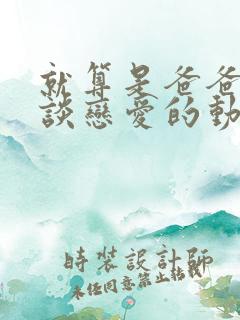 就算是爸爸
談戀愛的動
時裝設計師
未任同意禁止轉載